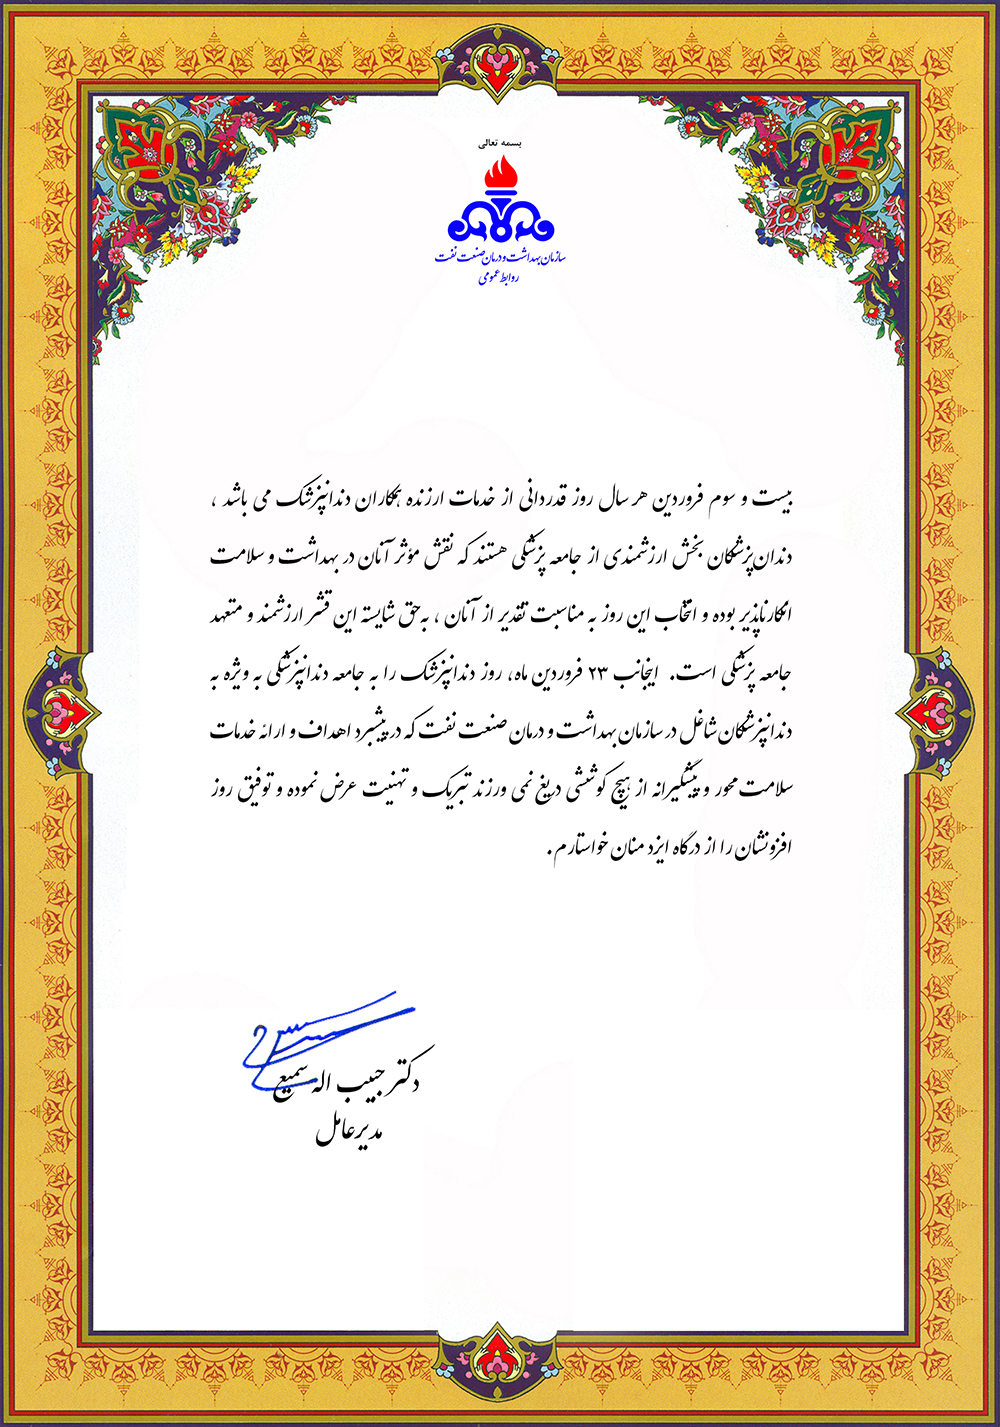 بسمه تعالی
سازمان بهداشت و درمان صنعت نفت
روابط عمومی
بیست و سوم فروردین هر سال روز قدردانی از خدمات ارزنده همکاران دندانپزشک می باشد ،
دندان‌پزشکان بخش ارزشمندی از جامعه پزشکی هستند که نقش مؤثر آنان در بهداشت و سلامت
انکارناپذیر بوده و انتخاب این روز به مناسبت تقدیر از آنان ، به‌حق شایسته این قشر ارزشمند و متعهد
جامعه پزشکی است. اینجانب ۲۳ فروردین ماه، روز دندانپزشک را به جامعه دندانپزشکی به ویژه به
دندانپزشکان شاغل در سازمان بهداشت و درمان صنعت نفت که در پیشبرد اهداف و ارائه خدمات
سلامت محور و پیشگیرانه از هیچ کوششی دریغ نمی ورزند تبریک و تهنیت عرض نموده و توفیق روز
افزونشان را از درگاه ایزد منان خواستارم.
دکتر حبیب اله سمیع
مدیرعامل